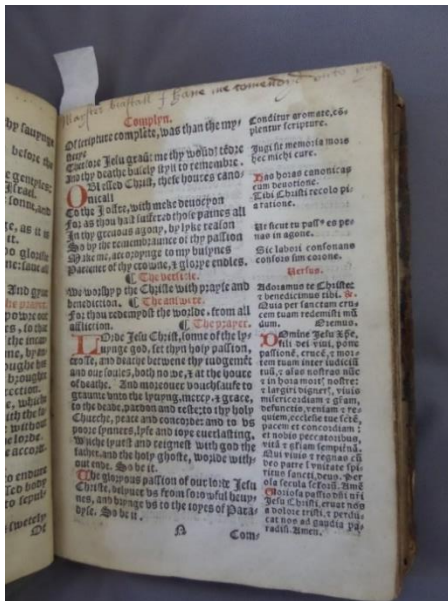 hy sauynge
before the
e gentyles:
Israel.
sonne, and
e, as it is
it.
oo glorifie
me: saue all
the prayer.
powre out
s, so that
the incar
me, by an
oughe
brought
which
without
be lorde.
to endure
led body
to sepul
swetely
Of
Master
Complyn.
Of scripture complete, was than the my-
sterye
Therfore Jesu graūt me thy woūds tēdre
And thy death busely styll to remembre.
O Blessed Christ, these houres cano
nicall
To the I offre, with meke deuocyon
For as thou hast suffered those paines all
In thy greuous agony, by lyke reason
So by the remembraunce of thy passion
Make me, accordynge to my busynes
Partener of thy crowne, & glorye endles.
¶ The versicle.
We worshyp the Christe with prayse and
benediction. ¶ The answere.
For thou redempdst the worlde. from all
affliction. ¶ The prayer.
LOrde Jesu Christ, sonne of the ly-
uynge god, set thyn holy passion,
crosse, and deathe betwene thy iudgmēt
and our soules, both nowe, & at the houre
of deathe. And moreouer vouchsaufe to
graunte vnto the lyuyng, mercy, & grace,
to the deade, pardon and reste: to thy holy
Churche, peace and concorde: and to vs
poore synners, lyfe and ioye euerlasting.
Whiche lyuest and reignest with god the
father, and the holy ghoste, worlde with-
out ende. So be it.
The gloryous passion of our lorde Jesu
Christe, delyuer vs from sorowful heuy-
nes, and brynge vs to the ioyes of Para-
dyse. So be it.
N
Com-
Conditur aromate, cō-
plentur scripture.
Jugi sit memoria mors
hec michi cure.
Has horas canonicas
cum deuotione.
Tibi Christi recolo pi
a ratione.
Ut sicut tu passꝰ es pe-
nas in agone.
Sic labori consonans
consors sim corone.
Versus.
Adoramus te Christe
et benedicimus tibi. ℟.
Quia per sanctam cru-
cem tuam redemisti mū
dum. Oremus.
DOmine Jesu Xpe,
fili dei viui, pone
passionē, crucē, & mor-
tem tuam inter iudiciū
tuū, & aīas nostras nūc
& in hora mortꝭ nostre:
& largiri digneris, viuis
misericordiam & grām,
defunctis, veniam & re-
quiem, ecclesie tue sctē,
pacem et concordiam :
et nobis peccatoribus,
vitā & glīam sempitnā.
Qui viuis & regnas cū
deo patre ī vnitate spi-
ritus sancti, deus. Per
oīa secula sclorū. Amē
Gloriosa passio dn̄i nr̄i
Jesu Christi, eruat nos
a dolore tristi, & perdu-
cat nos ad gaudia pa-
radisi. Amen.